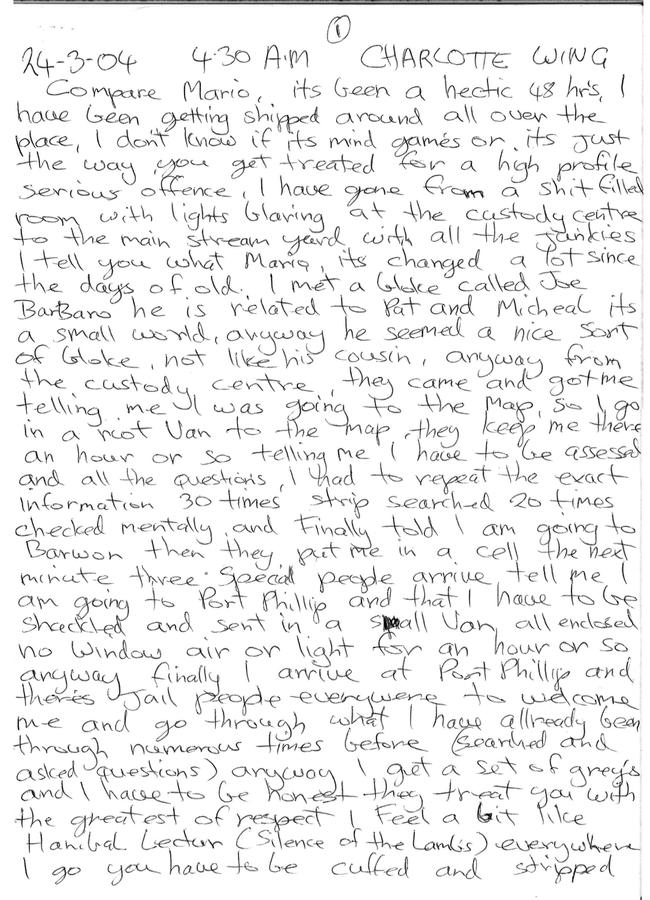 1
24-3-04 4·30 A·M CHARLOTTE WING
Compare Mario, its been a hectic 48 hrs, I
have been getting shipped around all over the
place, I don't know if its mind games or its just
the way you get treated for a hgh profile
serious offence, I have gone from a shit filled
room with lights blaring at the custody centre
to the main stream yard with all the junkies
I tell you what Mario, its changed a lot since
the days of old. I met a bloke called Joe
BarBaro he is related to Pat and Micheal its
a small world, anyway he seemed a nice sort
of bloke, not like his cousin, anyway from
the custody centre, they came and got me
telling me I was going to the Map, so I go
in a riot Van to the map, they keep me there
an hour or so telling me I have to be assessd
and all the questions, I had to repeat the exact
information 30 times strip searched 20 times
checked mentally and Finally told I am going to
Barwon then they put me in a cell the next
minute three Special people arrive tell me I
am going to Port Phillip and that I have to be
shackled and sent in a small Van, all enclosed
no window air or light for an hour or so
anyway finally I arrive at Port Phillip and
there's Jail people everywere to welcome
me and go through what I have allready been
through numerous times before (searched and
asked questions) anyway I get a set of grey's
and I have to be honest they treat you with
the greatest of respect I feel a bit like
Hanibal Lectur (Silence of the Lambs) everywhere
I go you have to be cuffed and stripped